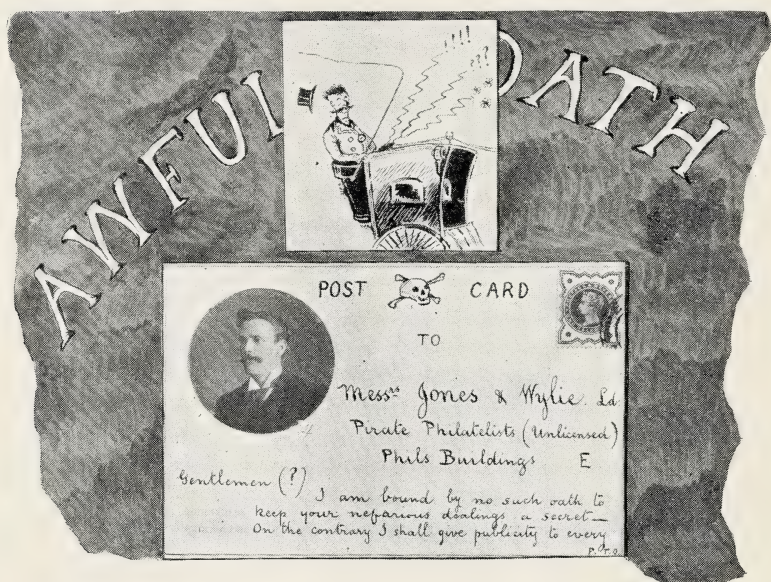 AWFUL OATH
!!!! ??
POST CARD
TO
Messrs Jones & Wylie. Ld
Pirate Philatelists (Unlicensed)
Phils Buildings E
Gentlemen (?)
I am bound by no such oath to
keep your nefarious dealings a secret—
On the contrary I shall give publicity to every
P.T.O.